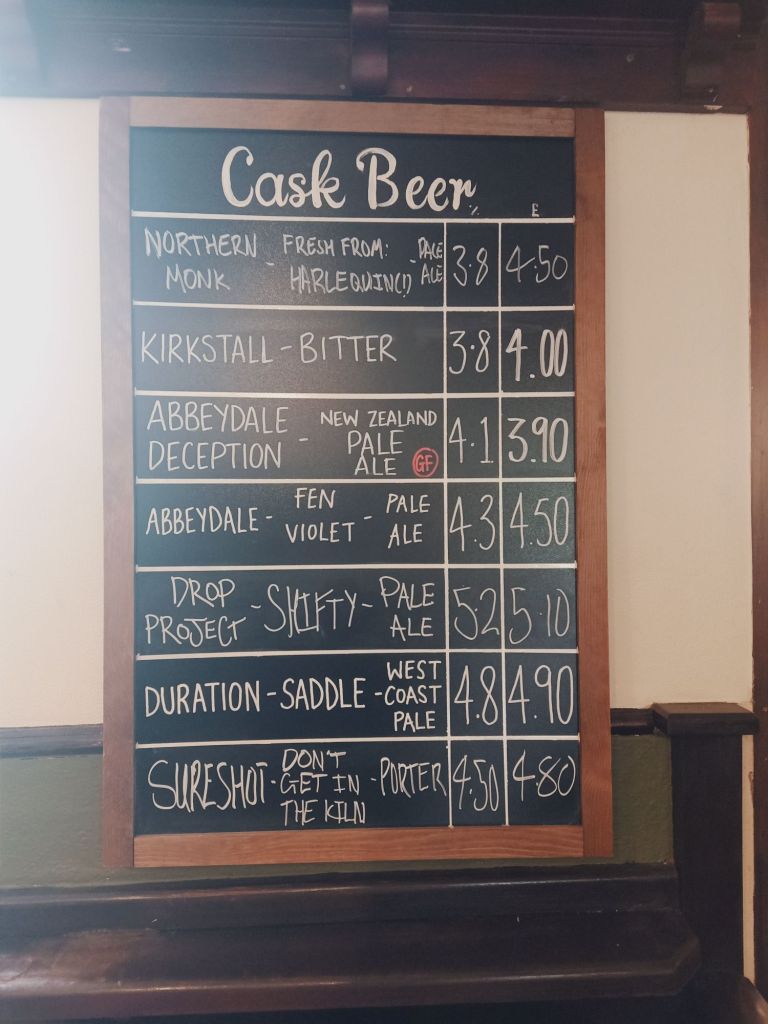 Cask Beer
% £
NORTHERN MONK - FRESH FROM: HARLEQUIN(!) - PALE ALE 3.8 4.50
KIRKSTALL - BITTER 3.8 4.00
ABBEYDALE DECEPTION - NEW ZEALAND PALE ALE GF 4.1 3.90
ABBEYDALE - FEN VIOLET - PALE ALE 4.3 4.50
DROP PROJECT - SHIFTY - PALE ALE 5.2 5.10
DURATION - SADDLE - WEST COAST PALE 4.8 4.90
SURESHOT - DON'T GET IN THE KILN - PORTER 4.50 4.80